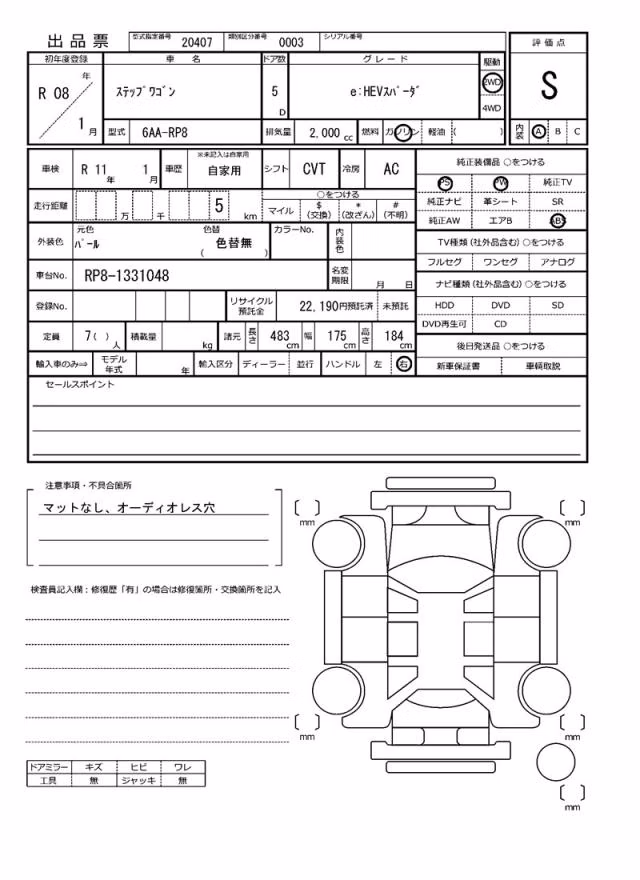 出品票
型式指定番号 20407 類別区分番号 0003 シリアル番号
初年度登録 車名 ドア数 グレード 駆動 評価点
R 08 年 1 月
ステップワゴン 5 D e:HEVスパーダ 2WD 4WD S
型式 6AA-RP8 排気量 2,000 cc 燃料 ガソリン 軽油 ( ) 内装 A B C
車検 R 11 年 1 月 車歴 ※未記入は自家用 自家用 シフト CVT 冷房 AC
走行距離 万 千 5 km
○をつける
マイル $ (交換) * (改ざん) # (不明)
外装色 元色 パール 色替 色替無 ( ) カラーNo. 内装色
車台No. RP8-1331048 名変期限 月 日
登録No. リサイクル預託金 22,190円預託済 未預託
定員 7( ) 人 積載量 kg 諸元 長さ 483 cm 幅 175 cm 高さ 184 cm
輸入車のみ⇒ モデル年式 年 輸入区分 ディーラー 並行 ハンドル 左 右
純正装備品 ○をつける
PS PW 純正TV
純正ナビ 革シート SR
純正AW エアB ABS
TV種類(社外品含む)○をつける
フルセグ ワンセグ アナログ
ナビ種類(社外品含む)○をつける
HDD DVD SD
DVD再生可 CD
後日発送品 ○をつける
新車保証書 車輌取説
セールスポイント
注意事項・不具合箇所
マットなし、オーディオレス穴
検査員記入欄:修復歴「有」の場合は修復箇所・交換箇所を記入
[ ] mm
[ ] mm
[ ] mm
[ ] mm
[ ] mm
ドアミラー キズ ヒビ ワレ
工具 無 ジャッキ 無